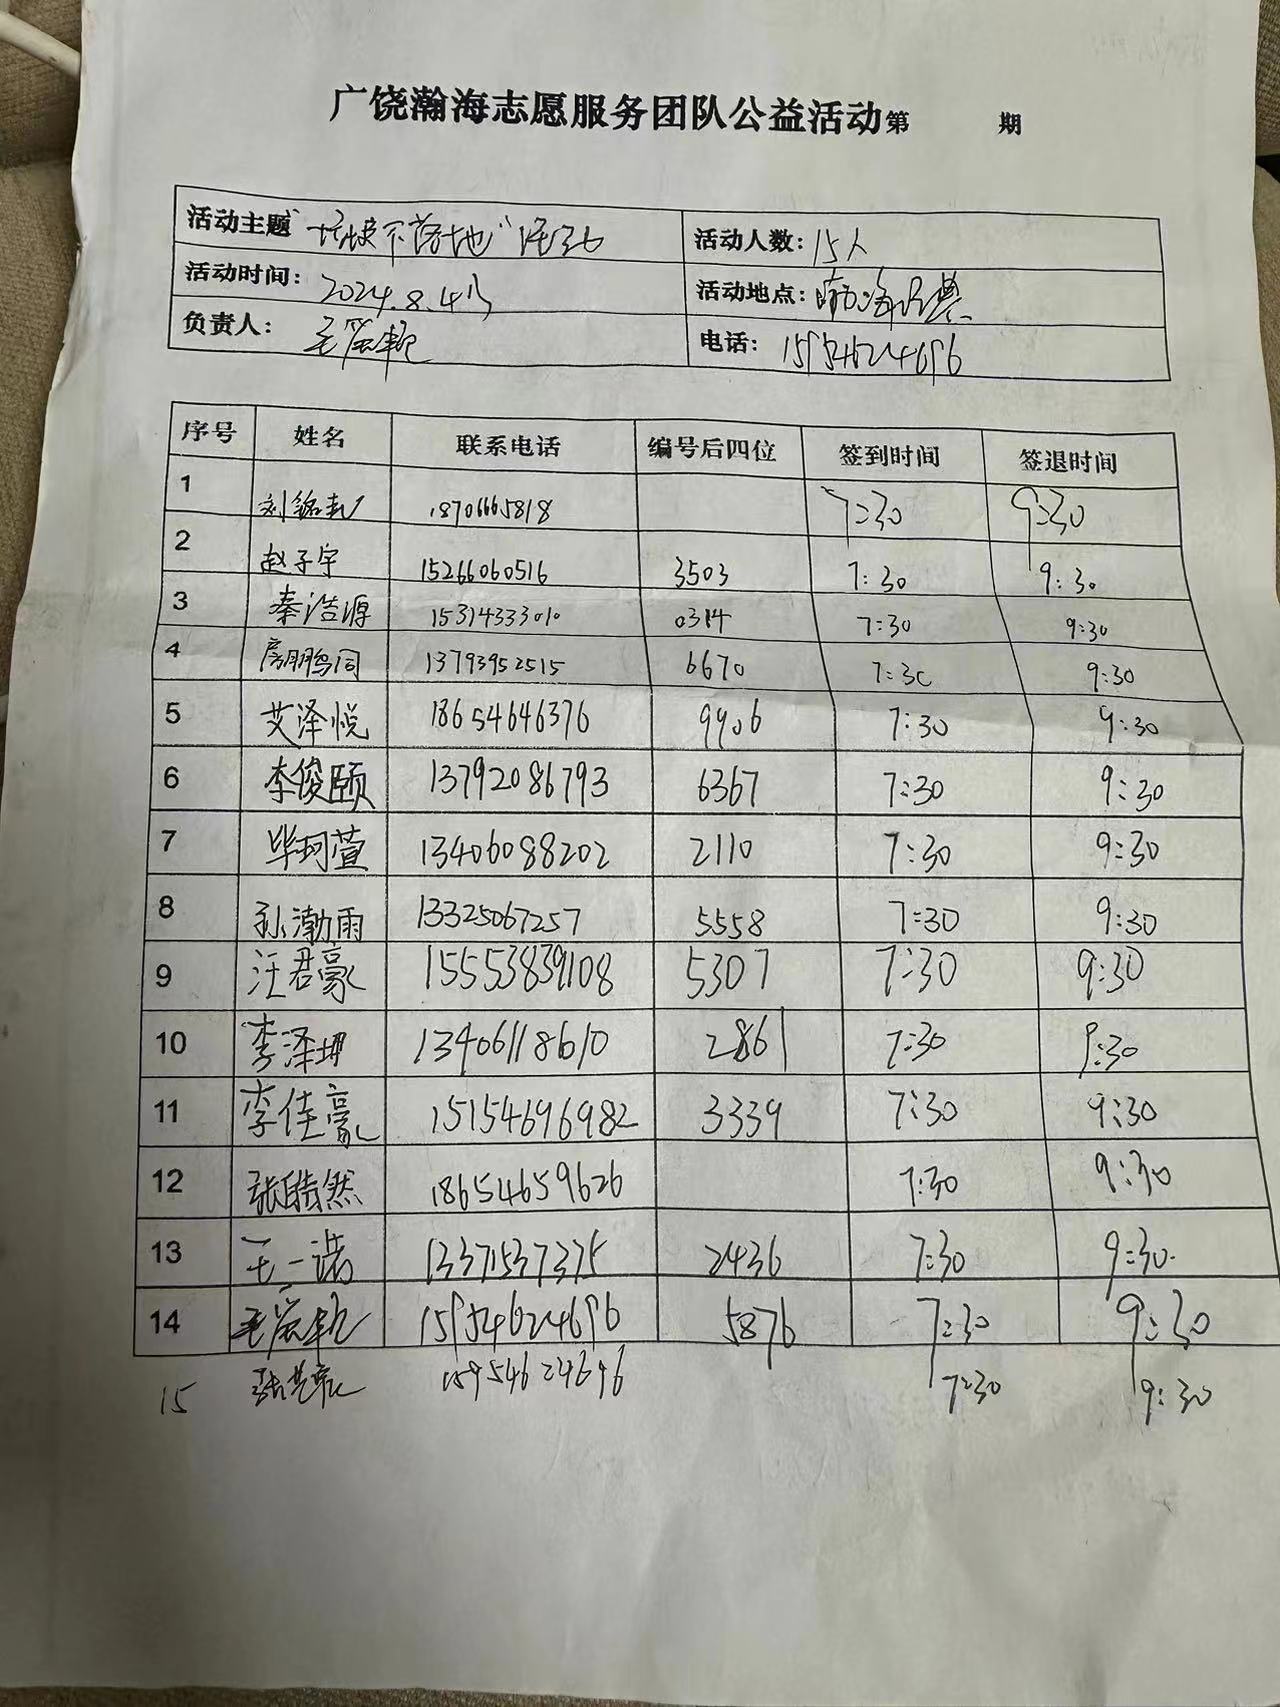 广饶瀚海志愿服务团队公益活动第 期
活动主题 "垃圾不落地"活动 活动人数: 15人
活动时间: 2024.8.4 活动地点:
负责人: 电话: 15954624696
序号 姓名 联系电话 编号后四位 签到时间 签退时间
1 18706665818 7:30 9:30
2 赵子宇 15266060516 3503 7:30 9:30
3 秦浩源 15314333010 0314 7:30 9:30
4 房鹏同 13793952515 6670 7:30 9:30
5 艾泽悦 18654646376 9906 7:30 9:30
6 李俊颐 13792086793 6367 7:30 9:30
7 毕珂萱 13406088202 2110 7:30 9:30
8 孙渤雨 13325067257 5558 7:30 9:30
9 汪君豪 15553839108 5307 7:30 9:30
10 李泽坤 13406118610 2861 7:30 9:30
11 李佳豪 15154696982 3339 7:30 9:30
12 张皓然 18654659626 7:30 9:30
13 王一诺 13371537375 2436 7:30 9:30
14 15954624696 5876 7:30 9:30
15 15954624696 7:30 9:30